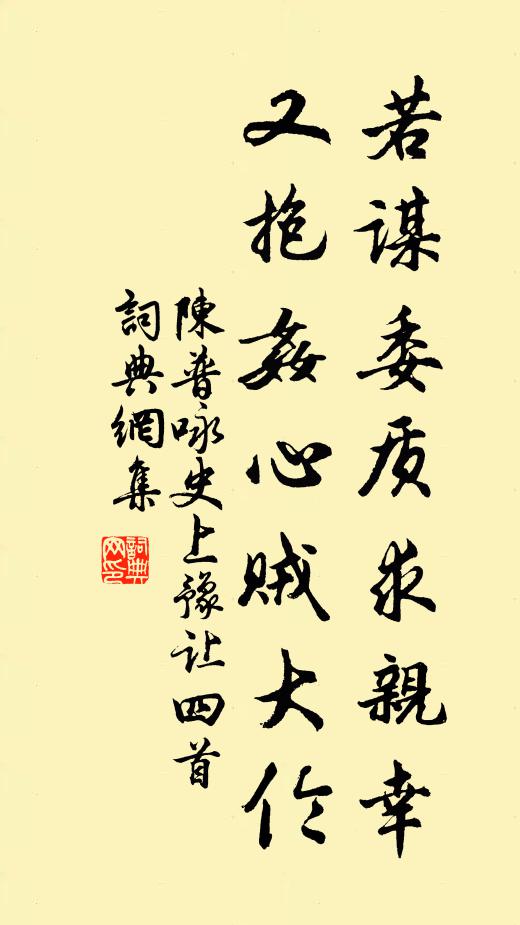 若谋委质求親幸
又抱姦心贼大伦
陳普咏史上豫让四首
詞典網集
詞典網印